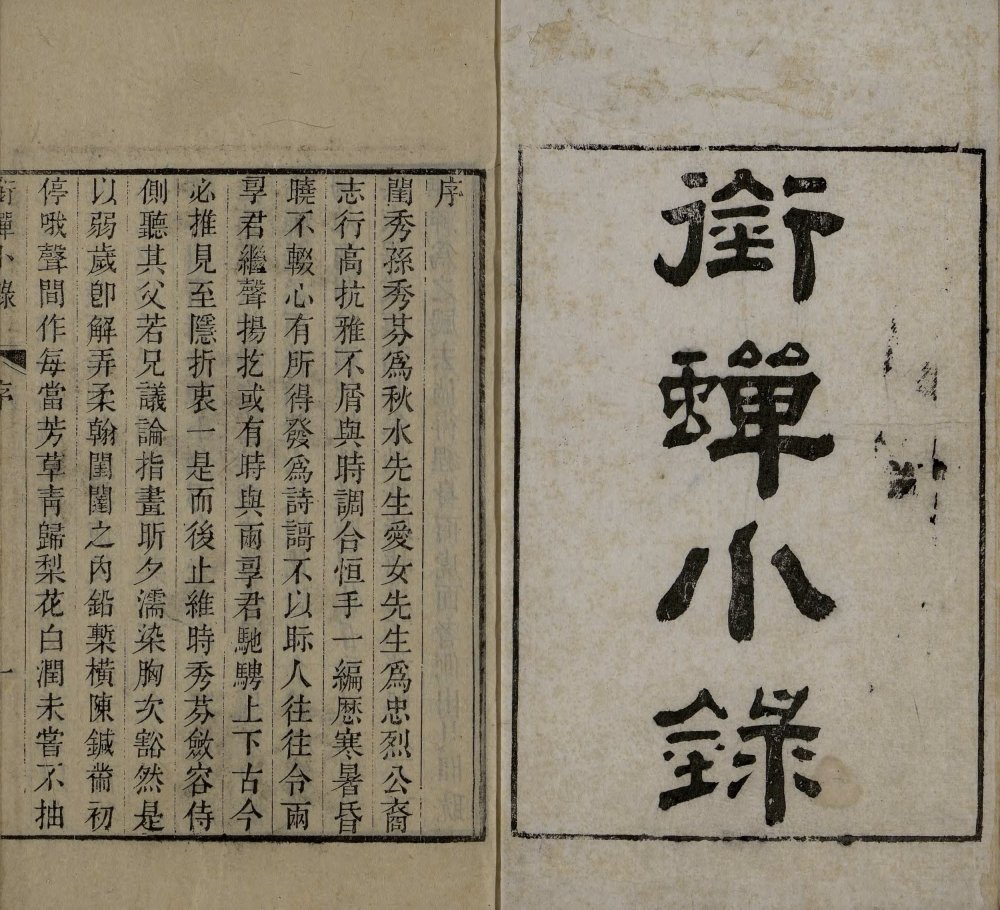 銜蟬小錄
序
閨秀孫秀芬爲秋水先生愛女先生爲忠烈公裔
志行高抗雅不屑與時調合恒手一編歷寒暑昏
曉不輟心有所得發爲詩謌不以眎人往往令兩
㝊君繼聲揚扢或有時與兩㝊君馳騁上下古今
必推見至隱折衷一是而後止維時秀芬斂容侍
側聽其父若兄議論指畫昕夕濡染胸次豁然是
以弱歲卽解弄柔翰閨闥之內鉛槧橫陳鍼黹初
停哦聲間作每當芳草靑歸梨花白潤未嘗不抽
銜蟬小錄
序
一